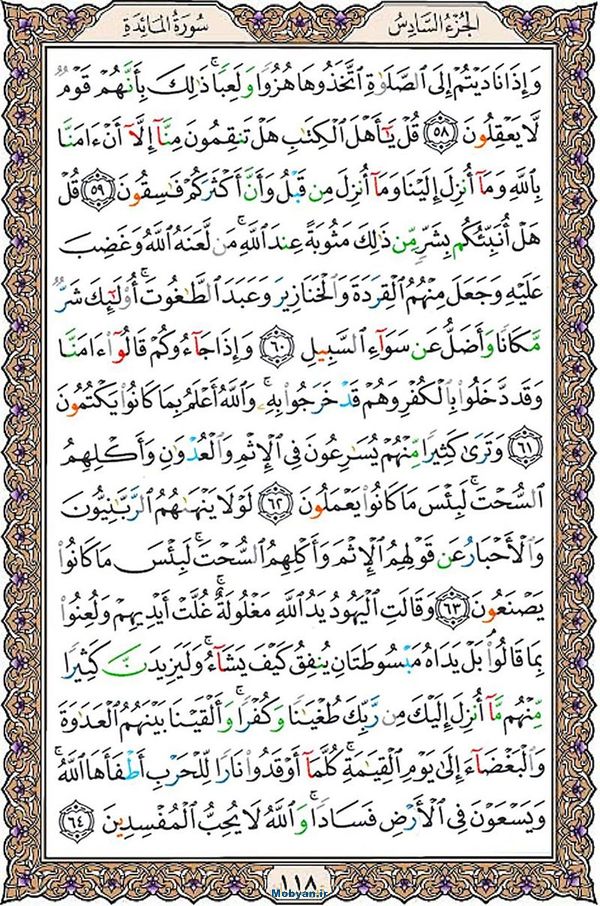 الجُزءُ السَّادِسُ
سُورَةُ المَائِدَةِ
وَإِذَا نَادَيْتُمْ إِلَى ٱلصَّلَوٰةِ ٱتَّخَذُوهَا هُزُوًا وَلَعِبًا ۚ ذَٰلِكَ بِأَنَّهُمْ قَوْمٌ
لَّا يَعْقِلُونَ ٥٨ قُلْ يَـٰٓأَهْلَ ٱلْكِتَـٰبِ هَلْ تَنقِمُونَ مِنَّآ إِلَّآ أَنْ ءَامَنَّا
بِٱللَّهِ وَمَآ أُنزِلَ إِلَيْنَا وَمَآ أُنزِلَ مِن قَبْلُ وَأَنَّ أَكْثَرَكُمْ فَـٰسِقُونَ ٥٩ قُلْ
هَلْ أُنَبِّئُكُم بِشَرٍّ مِّن ذَٰلِكَ مَثُوبَةً عِندَ ٱللَّهِ ۚ مَن لَّعَنَهُ ٱللَّهُ وَغَضِبَ
عَلَيْهِ وَجَعَلَ مِنْهُمُ ٱلْقِرَدَةَ وَٱلْخَنَازِيرَ وَعَبَدَ ٱلطَّـٰغُوتَ ۚ أُو۟لَـٰٓئِكَ شَرٌّ
مَّكَانًا وَأَضَلُّ عَن سَوَآءِ ٱلسَّبِيلِ ٦٠ وَإِذَا جَآءُوكُمْ قَالُوٓا۟ ءَامَنَّا
وَقَد دَّخَلُوا۟ بِٱلْكُفْرِ وَهُمْ قَدْ خَرَجُوا۟ بِهِۦ ۚ وَٱللَّهُ أَعْلَمُ بِمَا كَانُوا۟ يَكْتُمُونَ
٦١ وَتَرَىٰ كَثِيرًا مِّنْهُمْ يُسَـٰرِعُونَ فِى ٱلْإِثْمِ وَٱلْعُدْوَٰنِ وَأَكْلِهِمُ
ٱلسُّحْتَ ۚ لَبِئْسَ مَا كَانُوا۟ يَعْمَلُونَ ٦٢ لَوْلَا يَنْهَىٰهُمُ ٱلرَّبَّـٰنِيُّونَ
وَٱلْأَحْبَارُ عَن قَوْلِهِمُ ٱلْإِثْمَ وَأَكْلِهِمُ ٱلسُّحْتَ ۚ لَبِئْسَ مَا كَانُوا۟
يَصْنَعُونَ ٦٣ وَقَالَتِ ٱلْيَهُودُ يَدُ ٱللَّهِ مَغْلُولَةٌ ۚ غُلَّتْ أَيْدِيهِمْ وَلُعِنُوا۟
بِمَا قَالُوا۟ ۘ بَلْ يَدَاهُ مَبْسُوطَتَانِ يُنفِقُ كَيْفَ يَشَآءُ ۚ وَلَيَزِيدَنَّ كَثِيرًا
مِّنْهُم مَّآ أُنزِلَ إِلَيْكَ مِن رَّبِّكَ طُغْيَـٰنًا وَكُفْرًا ۚ وَأَلْقَيْنَا بَيْنَهُمُ ٱلْعَدَٰوَةَ
وَٱلْبَغْضَآءَ إِلَىٰ يَوْمِ ٱلْقِيَـٰمَةِ ۚ كُلَّمَآ أَوْقَدُوا۟ نَارًا لِّلْحَرْبِ أَطْفَأَهَا ٱللَّهُ ۚ
وَيَسْعَوْنَ فِى ٱلْأَرْضِ فَسَادًا ۚ وَٱللَّهُ لَا يُحِبُّ ٱلْمُفْسِدِينَ ٦٤
١١٨
Mobyan.ir